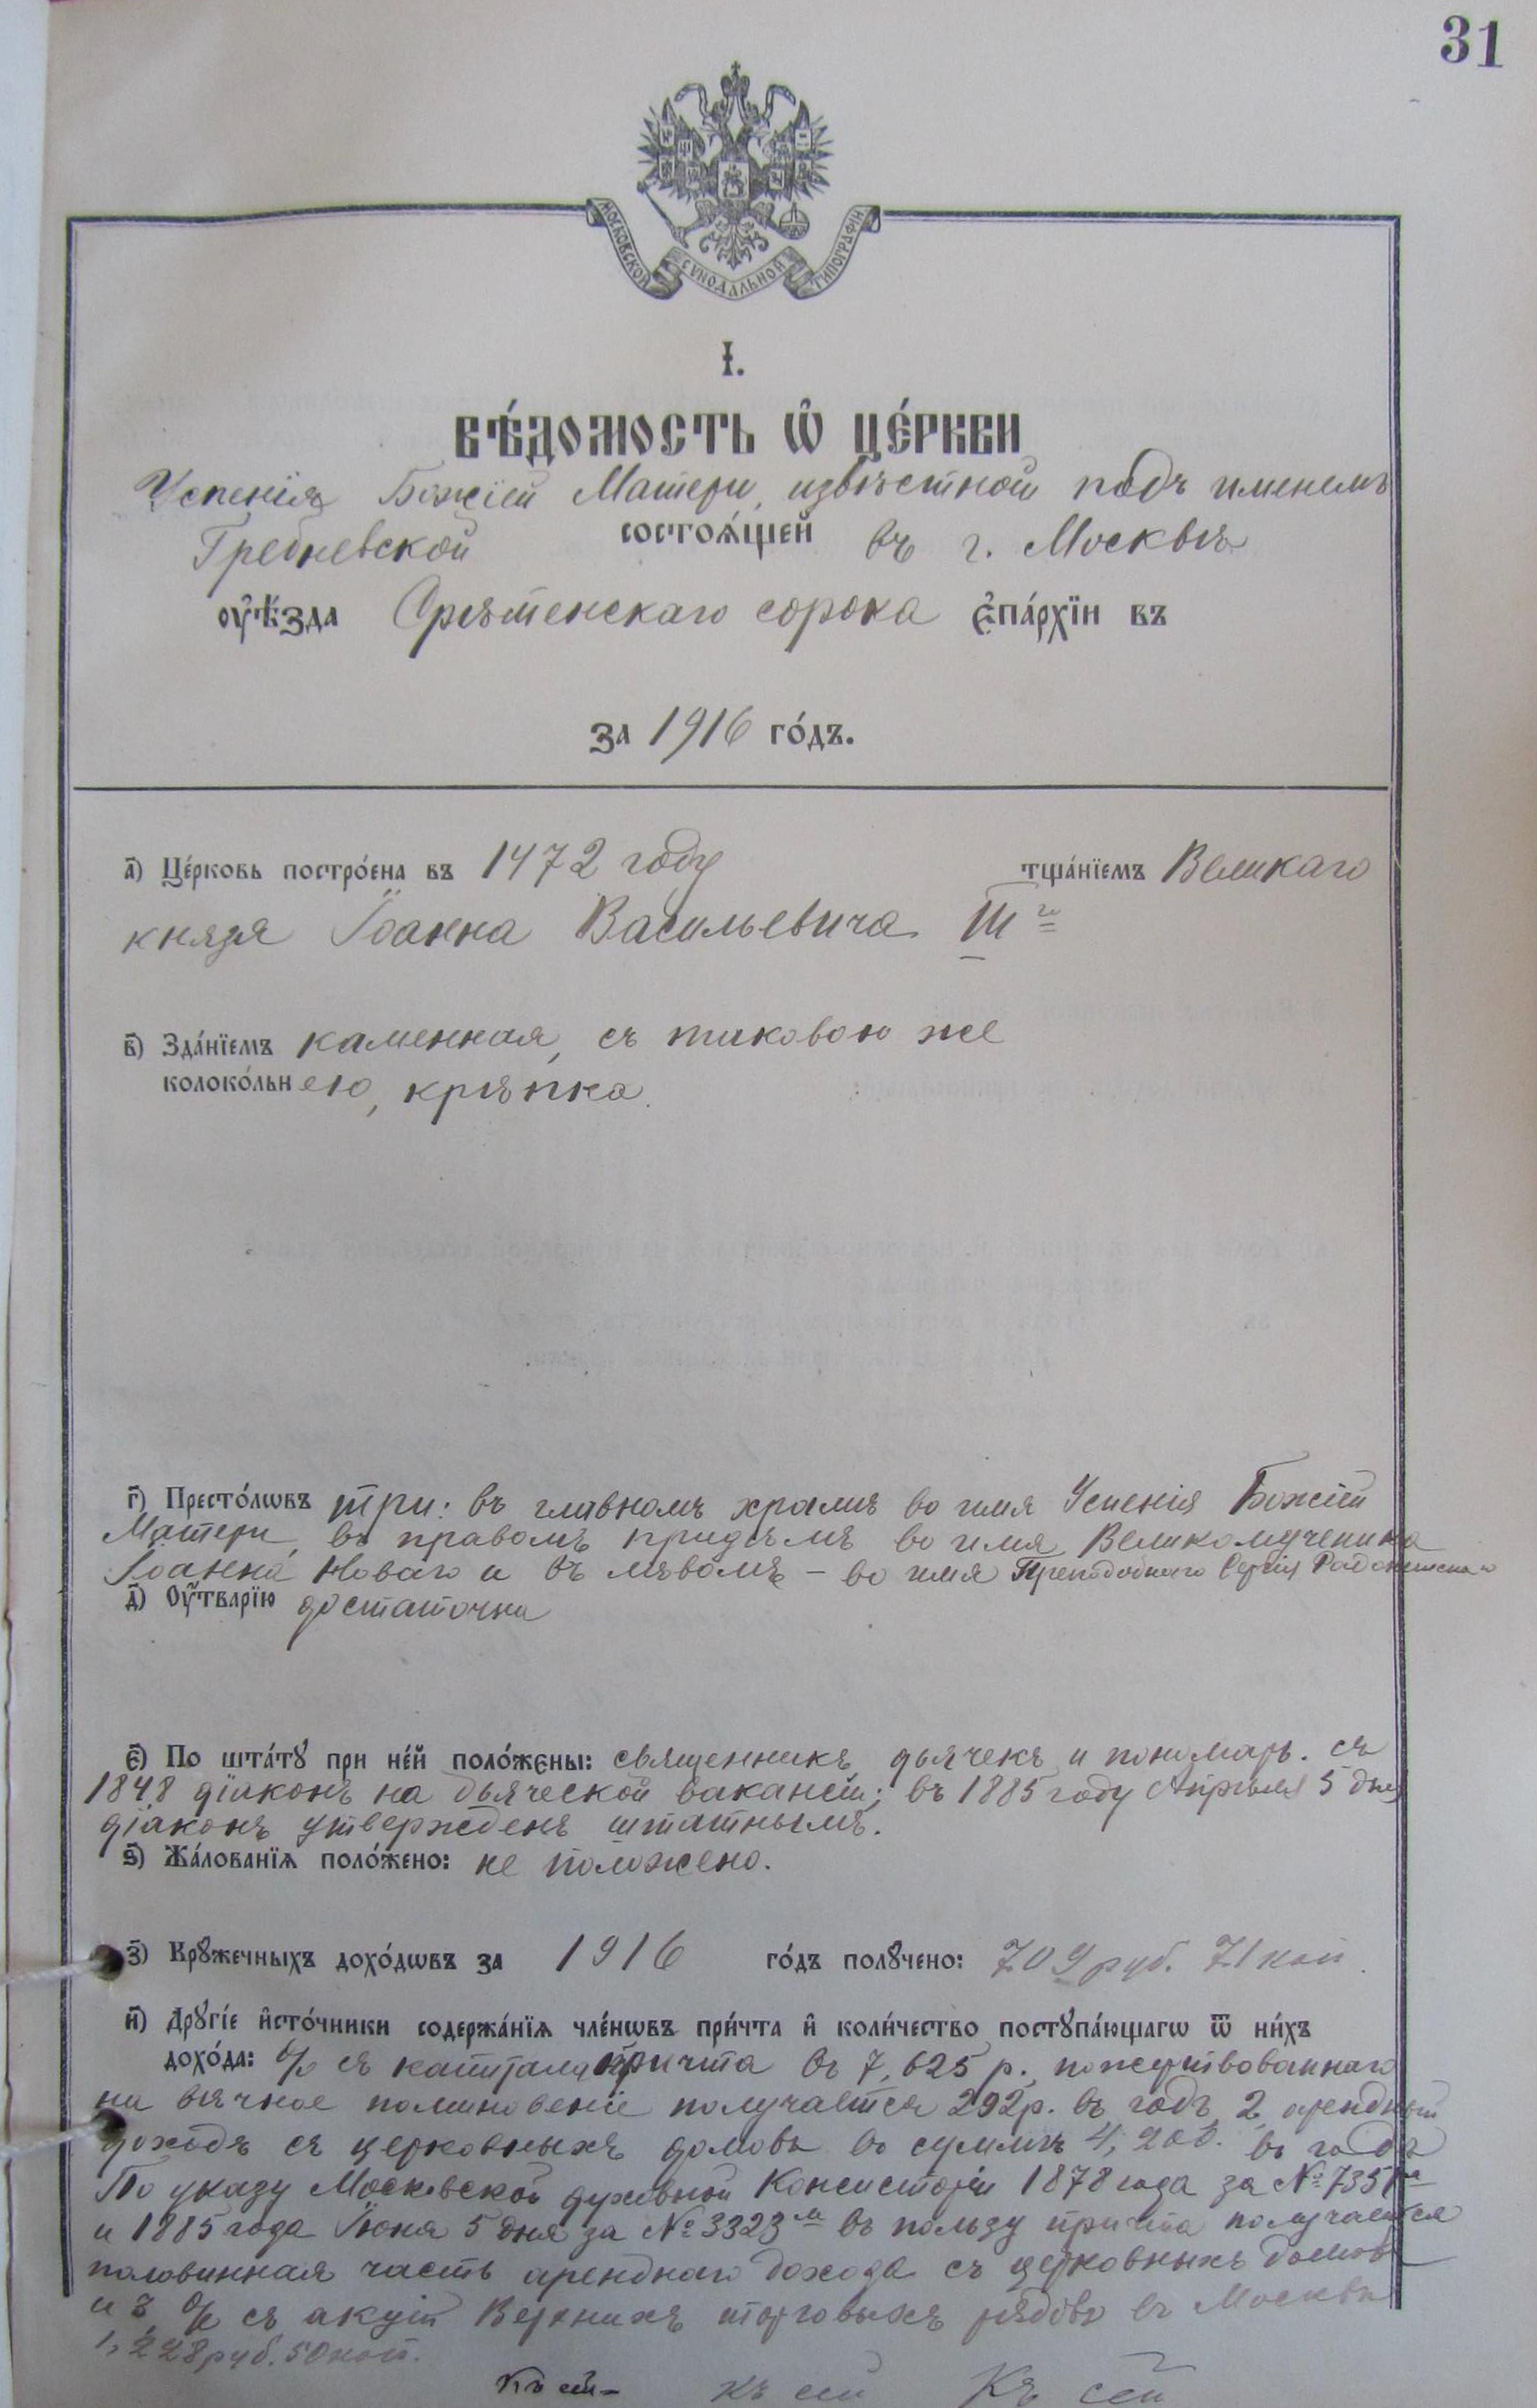 31
МОСКОВСКОЙ СѴНОДАЛЬНОЙ ТИПОГРАФІИ
І.
ВѢ́ДОМОСТЬ Ѡ҆ ЦЕ́РКВИ
Успенія Божіей Матери, извѣстной подъ именемъ
Гребневской состоѧ́щей въ г. Москвѣ
оу҆ѣ́зда Срѣтенскаго сорока є҆па́рхїи въ
за 1916 го́дъ.
а҃) Це́рковь постро́ена въ 1472 году тща́нїемъ Великаго
князя Іоанна Васильевича III го
в҃) Зда́нїемъ каменная, съ таковою же
колоко́льнею, крѣпка.
г҃) Престо́лѡвъ три: въ главномъ храмѣ во имя Успенія Божіей
Матери, въ правомъ придѣлѣ во имя Великомученика
Іоанна Новаго и въ лѣвомъ – во имя Преподобнаго Сергія Радонежскаго
д҃) Оу҆́тварїю достаточна
є҃) По шта́тꙋ при не́й поло́жены: священникъ, дьячекъ и пономарь. съ
1848 діаконъ на дьяческой вакансіи; въ 1885 году Апрѣля 5 дня
діаконъ утвержденъ штатнымъ.
ѕ҃) Жа́лованїѧ поло́жено: не положено.
з҃) Крꙋжечныхъ дохо́дѡвъ за 1916 го́дъ полꙋчено: 709 руб. 71 коп.
и҃) Дрꙋгі́е и҆сто́чники содержа́нїѧ чле́нѡвъ при́чта и҆ коли́чество постꙋпа́ющагѡ ѿ ни́хъ
дохо́да: % съ капитала причта въ 7,625 р., пожертвованнаго
на вѣчное поминовеніе получается 292 р. въ годъ, 2, арендный
доходъ съ церковныхъ домовъ въ суммѣ 4,200. въ годъ
По указу Московской духовной Консисторіи 1878 года за № 7351
и 1885 года Іюня 5 дня за № 3323 м въ пользу причта получается
половинная часть аренднаго дохода съ церковныхъ домовъ
и 3, % съ акцій Верхнихъ торговыхъ рядовъ въ Москвѣ
1,228 руб. 50 коп.
Къ сей Къ сей Къ сей